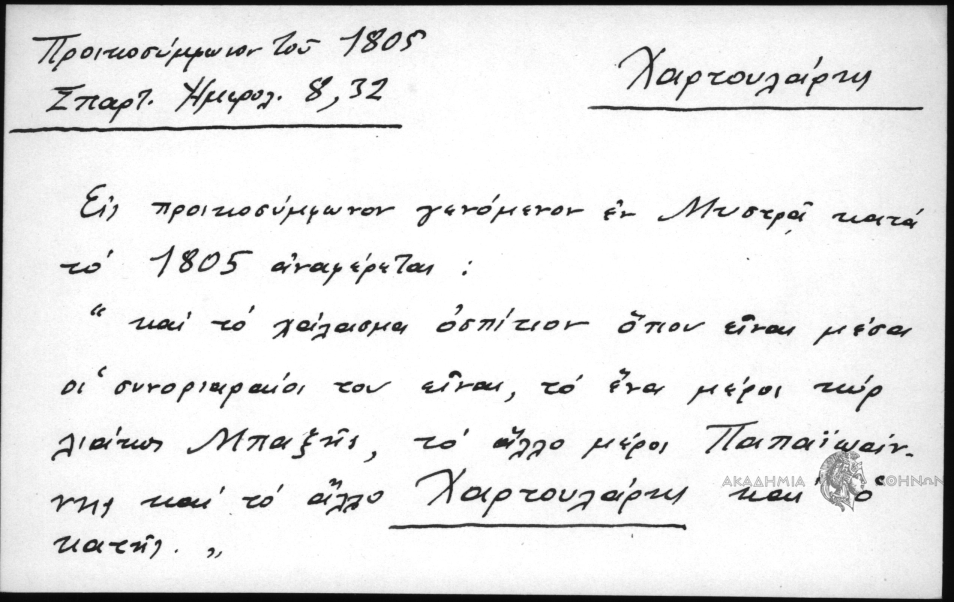 Προικοσύμφωνον τοῦ 1805
Σπαρτ. Ἡμερολ. 8,32
Χαρτουλάρης
Εἰς προικοσύμφωνον γενόμενον ἐν Μυστρᾷ κατά
τό 1805 ἀναφέρεται :
“ καί τό χάλασμα ὁσπίτιον ὅπου εἶναι μέσα
οἱ συνοριαραῖοι του εἶναι, τό ἕνα μέρος κύρ
Μπαξῆς, τό ἄλλο μέρος Παπαϊωάν-
νης καί τό ἄλλο Χαρτουλάρης καί ὁ
κατῆς. „
ΑΚΑΔΗΜΙΑ ΑΘΗΝΩΝ